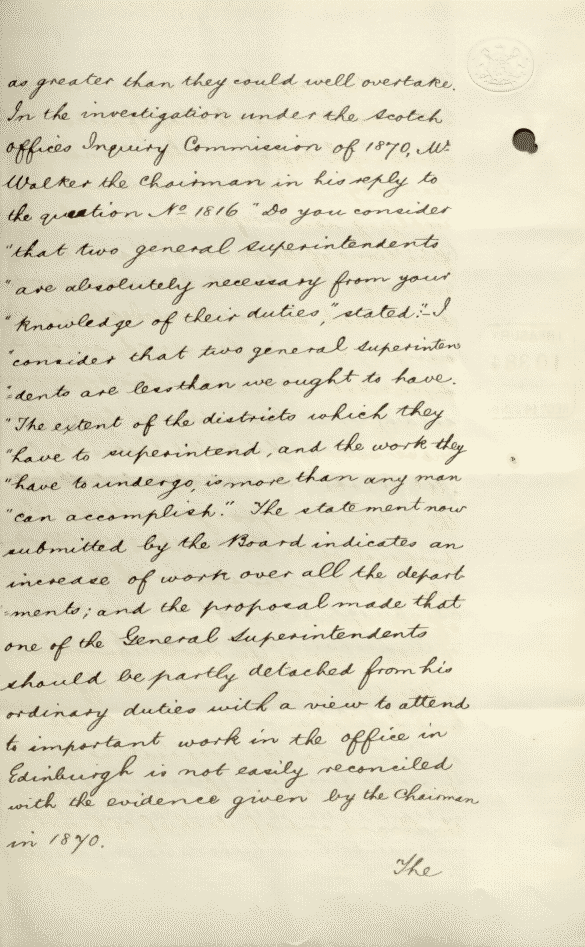 as greater than they could well overtake.
In the investigation under the Scotch
offices Inquiry Commission of 1870, Mr
Walker the Chairman in his reply to
the question No 1816 "Do you consider
"that two general superintendents
"are absolutely necessary from your
"knowledge of their duties," stated:- "I
"consider that two general superinten
"=dents are less than we ought to have.
"The extent of the districts which they
"have to superintend, and the work they
"have to undergo, is more than any man
"can accomplish." The statement now
submitted by the Board indicates an
increase of work over all the depart
=ments; and the proposal made that
one of the General Superintendents
should be partly detached from his
ordinary duties with a view to attend
to important work in the office in
Edinburgh is not easily reconciled
with the evidence given by the Chairman
in 1870.
The